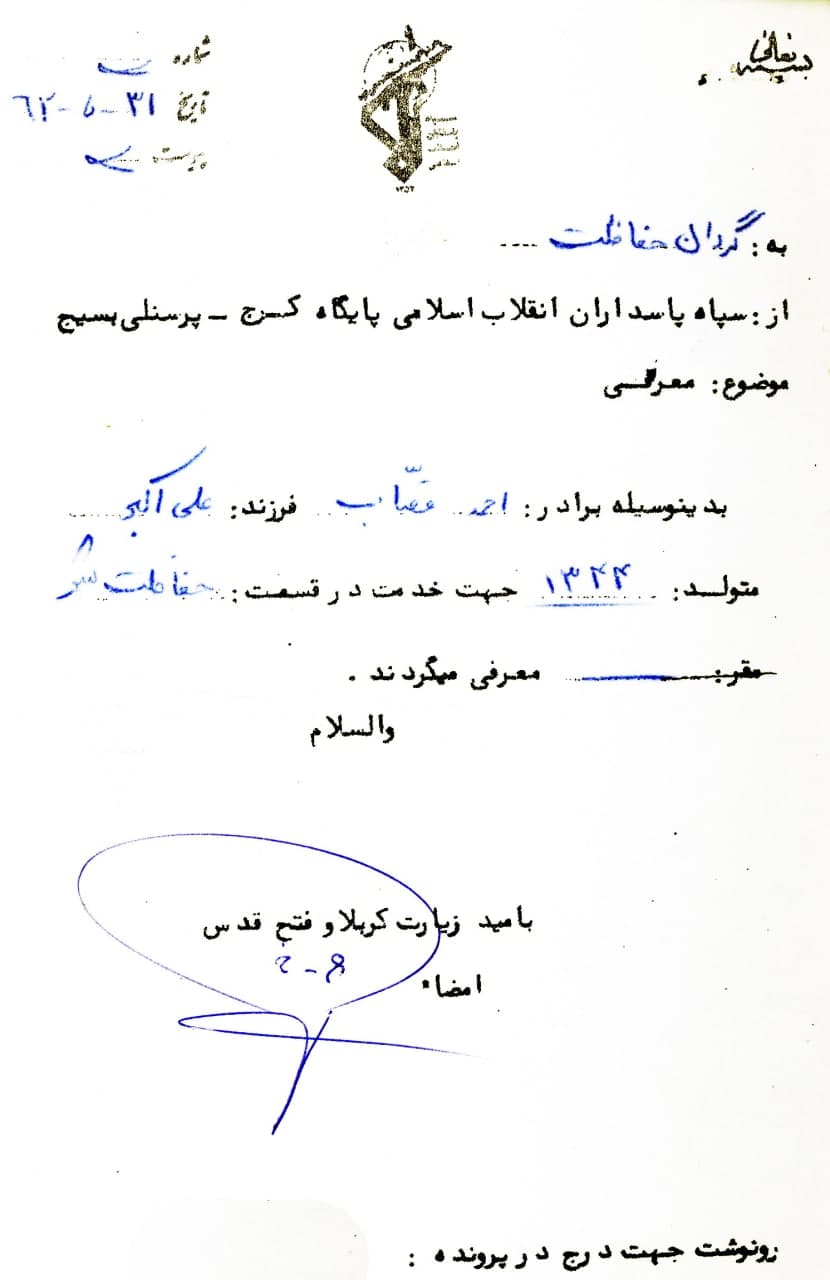 بسمه تعالی
شماره
تاریخ ۳۱-۵-۶۲
پیوست
۱۳۵۷
به: گردان حفاظت
از: سپاه پاسداران انقلاب اسلامی پایگاه کرج - پرسنلی بسیج
موضوع: معرفی
بدینوسیله برادر: احمد قصّاب فرزند: علی اکبر
متولد: ۱۳۴۴ جهت خدمت در قسمت: حفاظت
مقر: معرفی میگردند.
والسلام
بامید زیارت کربلا و فتح قدس
امضاء
رونوشت جهت درج در پرونده: